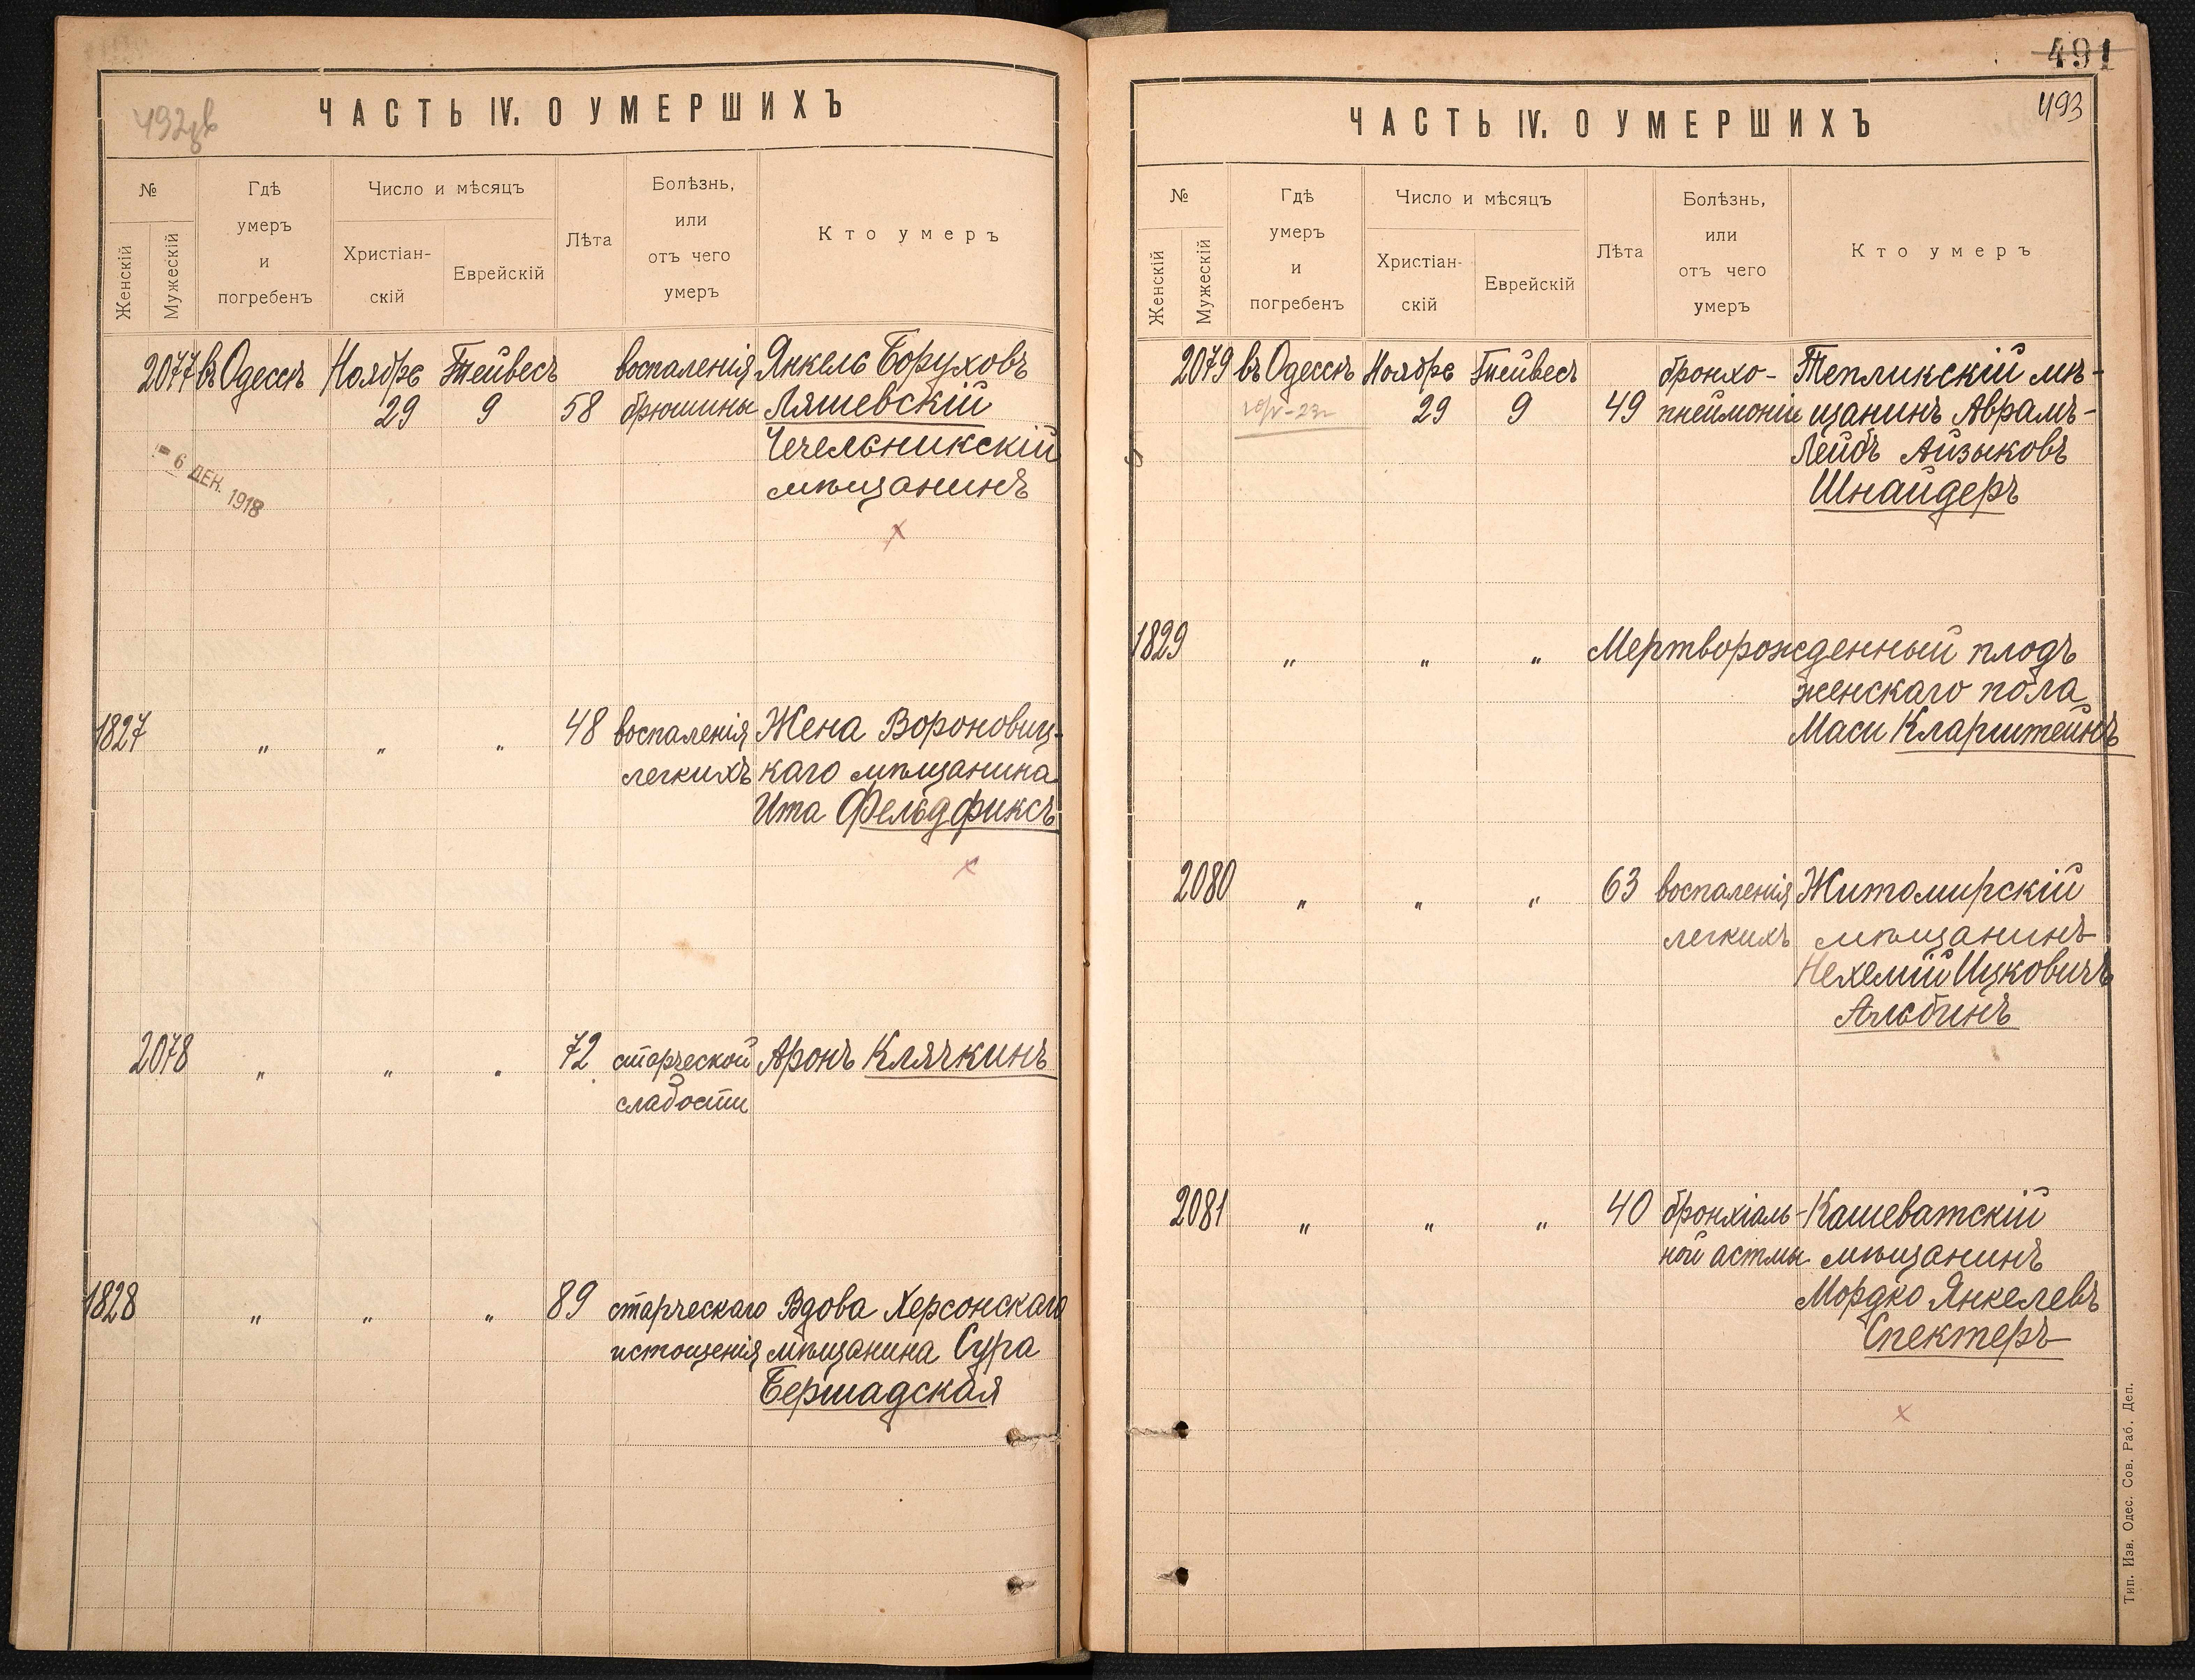 ЧАСТЬ IV. О УМЕРШИХЪ
№
Женскій
Мужескій
Гдѣ
умеръ
и
погребенъ
Число и мѣсяцъ
Христіан-
скій
Еврейскій
Лѣта
Болѣзнь,
или
отъ чего
умеръ
Кто умеръ
2077 въ Одессѣ Ноябре Тейвесъ воспаленія Янкель Боруховъ
29 9 58 брюшины Ляшевскій
Чечельникскій
мѣщанинъ
- 6 ДЕК. 1918
1827 " " " 48 воспаленія Жена Воронович-
легкихъ каго мѣщанина
Ита Фельдфиксъ
2078 " " " 72 старческой Аронъ Клячкинъ
слабости
1828 " " " 89 старческаго Вдова Херсонскаго
истощенія мѣщанина Сура
Бершадская
491
493
ЧАСТЬ IV. О УМЕРШИХЪ
№
Женскій
Мужескій
Гдѣ
умеръ
и
погребенъ
Число и мѣсяцъ
Христіан-
скій
Еврейскій
Лѣта
Болѣзнь,
или
отъ чего
умеръ
Кто умеръ
2079 въ Одессѣ Ноябре Тейвесъ бронхо- Тепликскій мѣ-
29 9 49 пнеймоніи щанинъ Аврамъ-
Лейбъ Айзыковъ
Шнайдеръ
1829 " " " Мертворожденный плодъ
женскаго пола
Маси Кларштейнъ
2080 " " " 63 воспаленія Житомирскій
легкихъ мѣщанинъ
Нехемій Ицковичъ
Альбинъ
2081 " " " 40 бронхіаль- Кашеватскій
ной астмы мѣщанинъ
Мордко Янкелевъ
Спектеръ
Тип. Изв. Одес. Сов. Раб. Деп.